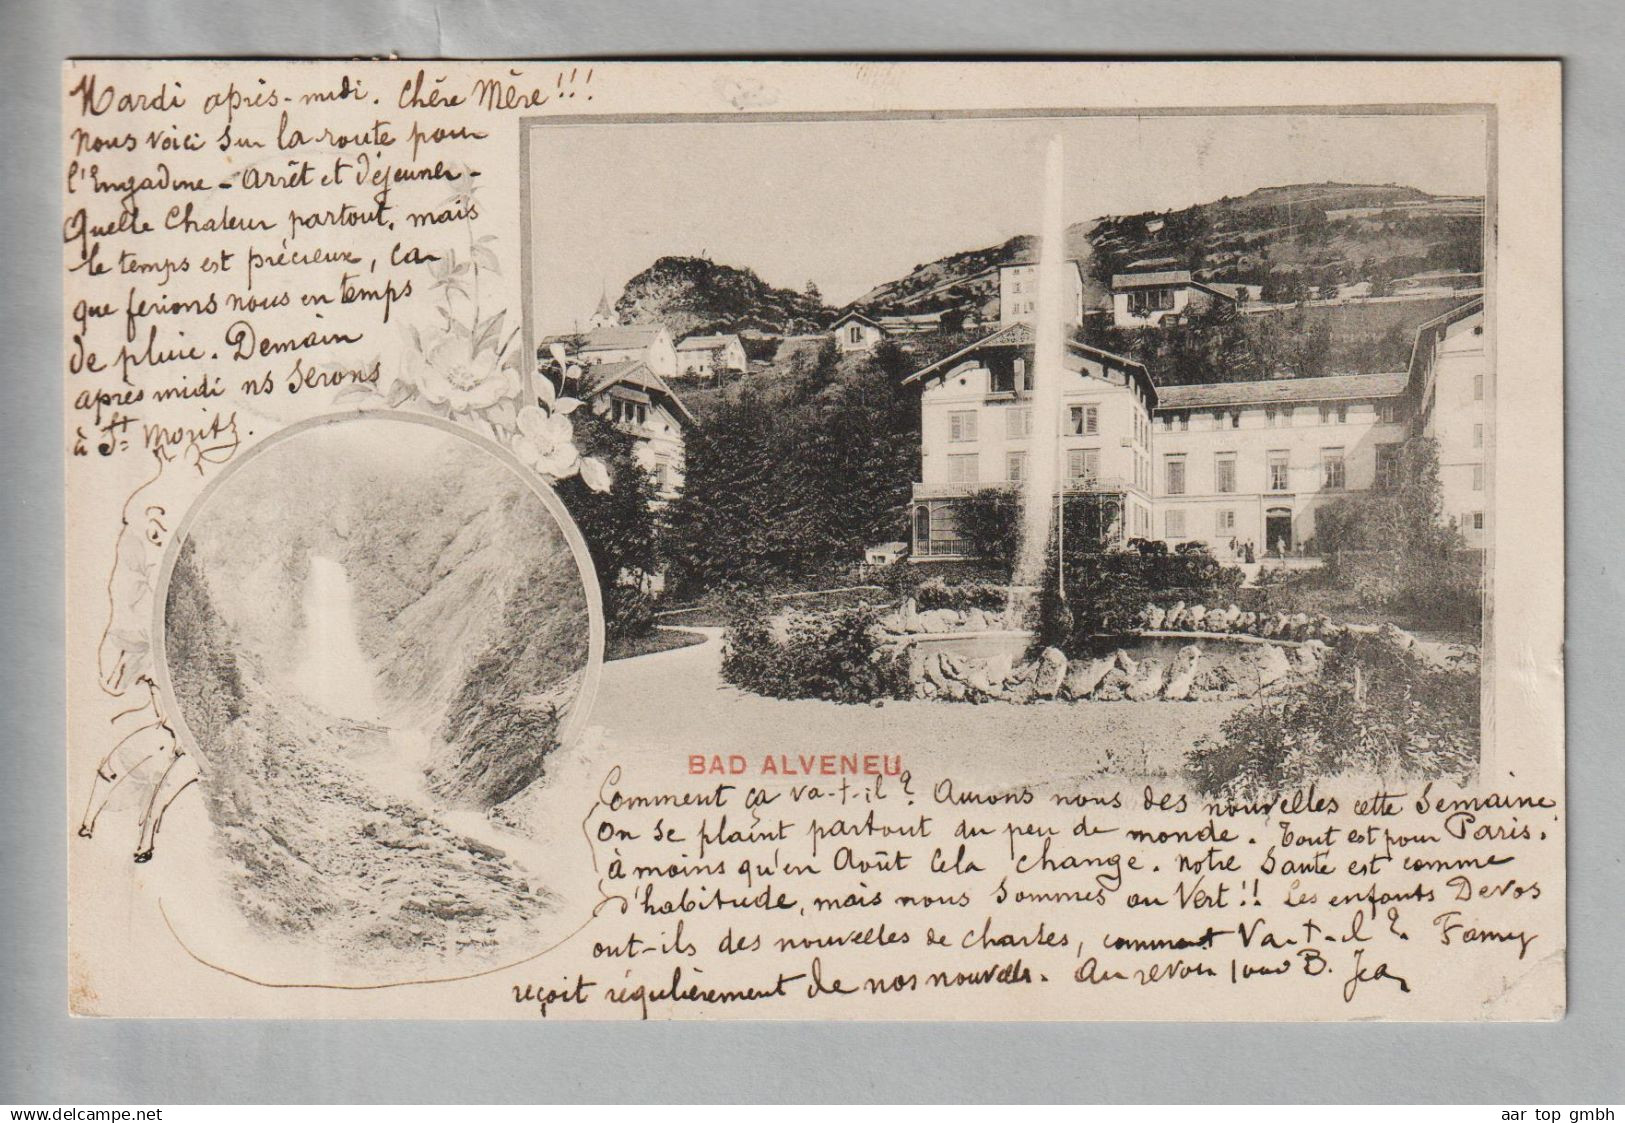 Mardi après-midi. Chère Mère !!!
Nous voici sur la route pour
l'Engadine - Arrêt et Déjeuner -
Quelle Chaleur partout, mais
le temps est précieux, ca
que ferions nous en temps
de pluie. Demain
après midi ns serons
à St Moritz.
BAD ALVENEU
Comment ça va-t-il ? Aurons nous des nouvelles cette Semaine
On se plaint partout du peu de monde. Tout est pour Paris.
à moins qu'en Août Cela change. Notre Santé est comme
d'habitude, mais nous sommes au Vert !! Les enfants Devos
ont-ils des nouvelles de Charles, comment Va-t-il ? Famy
reçoit régulièrement de nos nouvelles. Au revoir 1000 B. Jea
delcampe.net
aar top gmbh